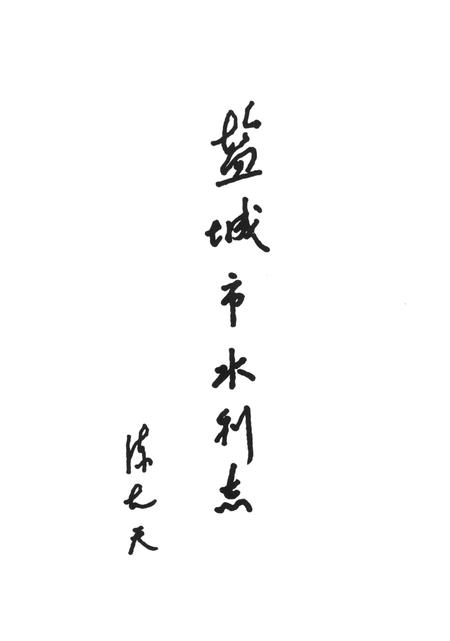 盐城市水利志
陈克天